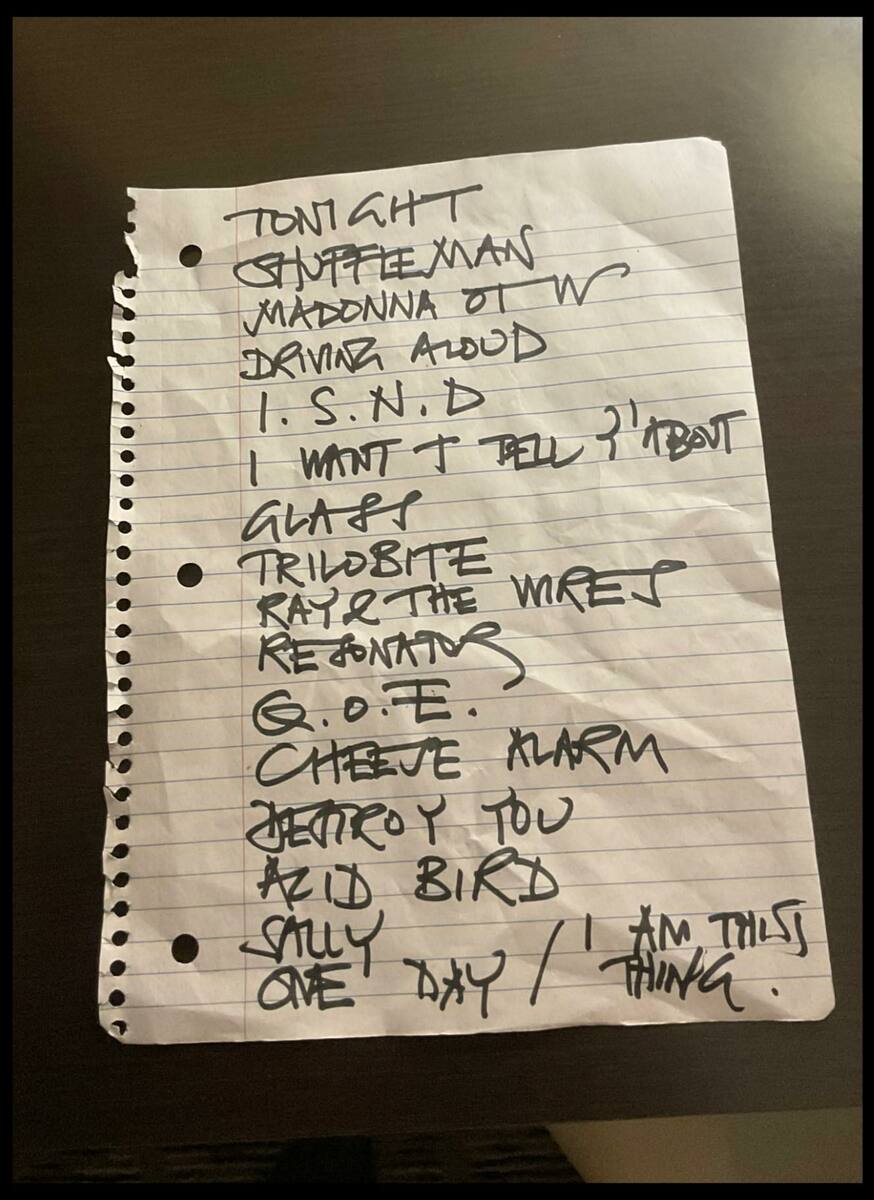 TONIGHT
SHUFFLEMAN
MADONNA OT W
DRIVING ALOUD
I. S. N. D
I WANT T TELL Y' ABOUT
GLASS
TRILOBITE
RAY & THE WIRES
RESONATOR
G.O.E.
CHEESE ALARM
DESTROY YOU
ACID BIRD
SALLY
ONE DAY / I AM THIS
THING.